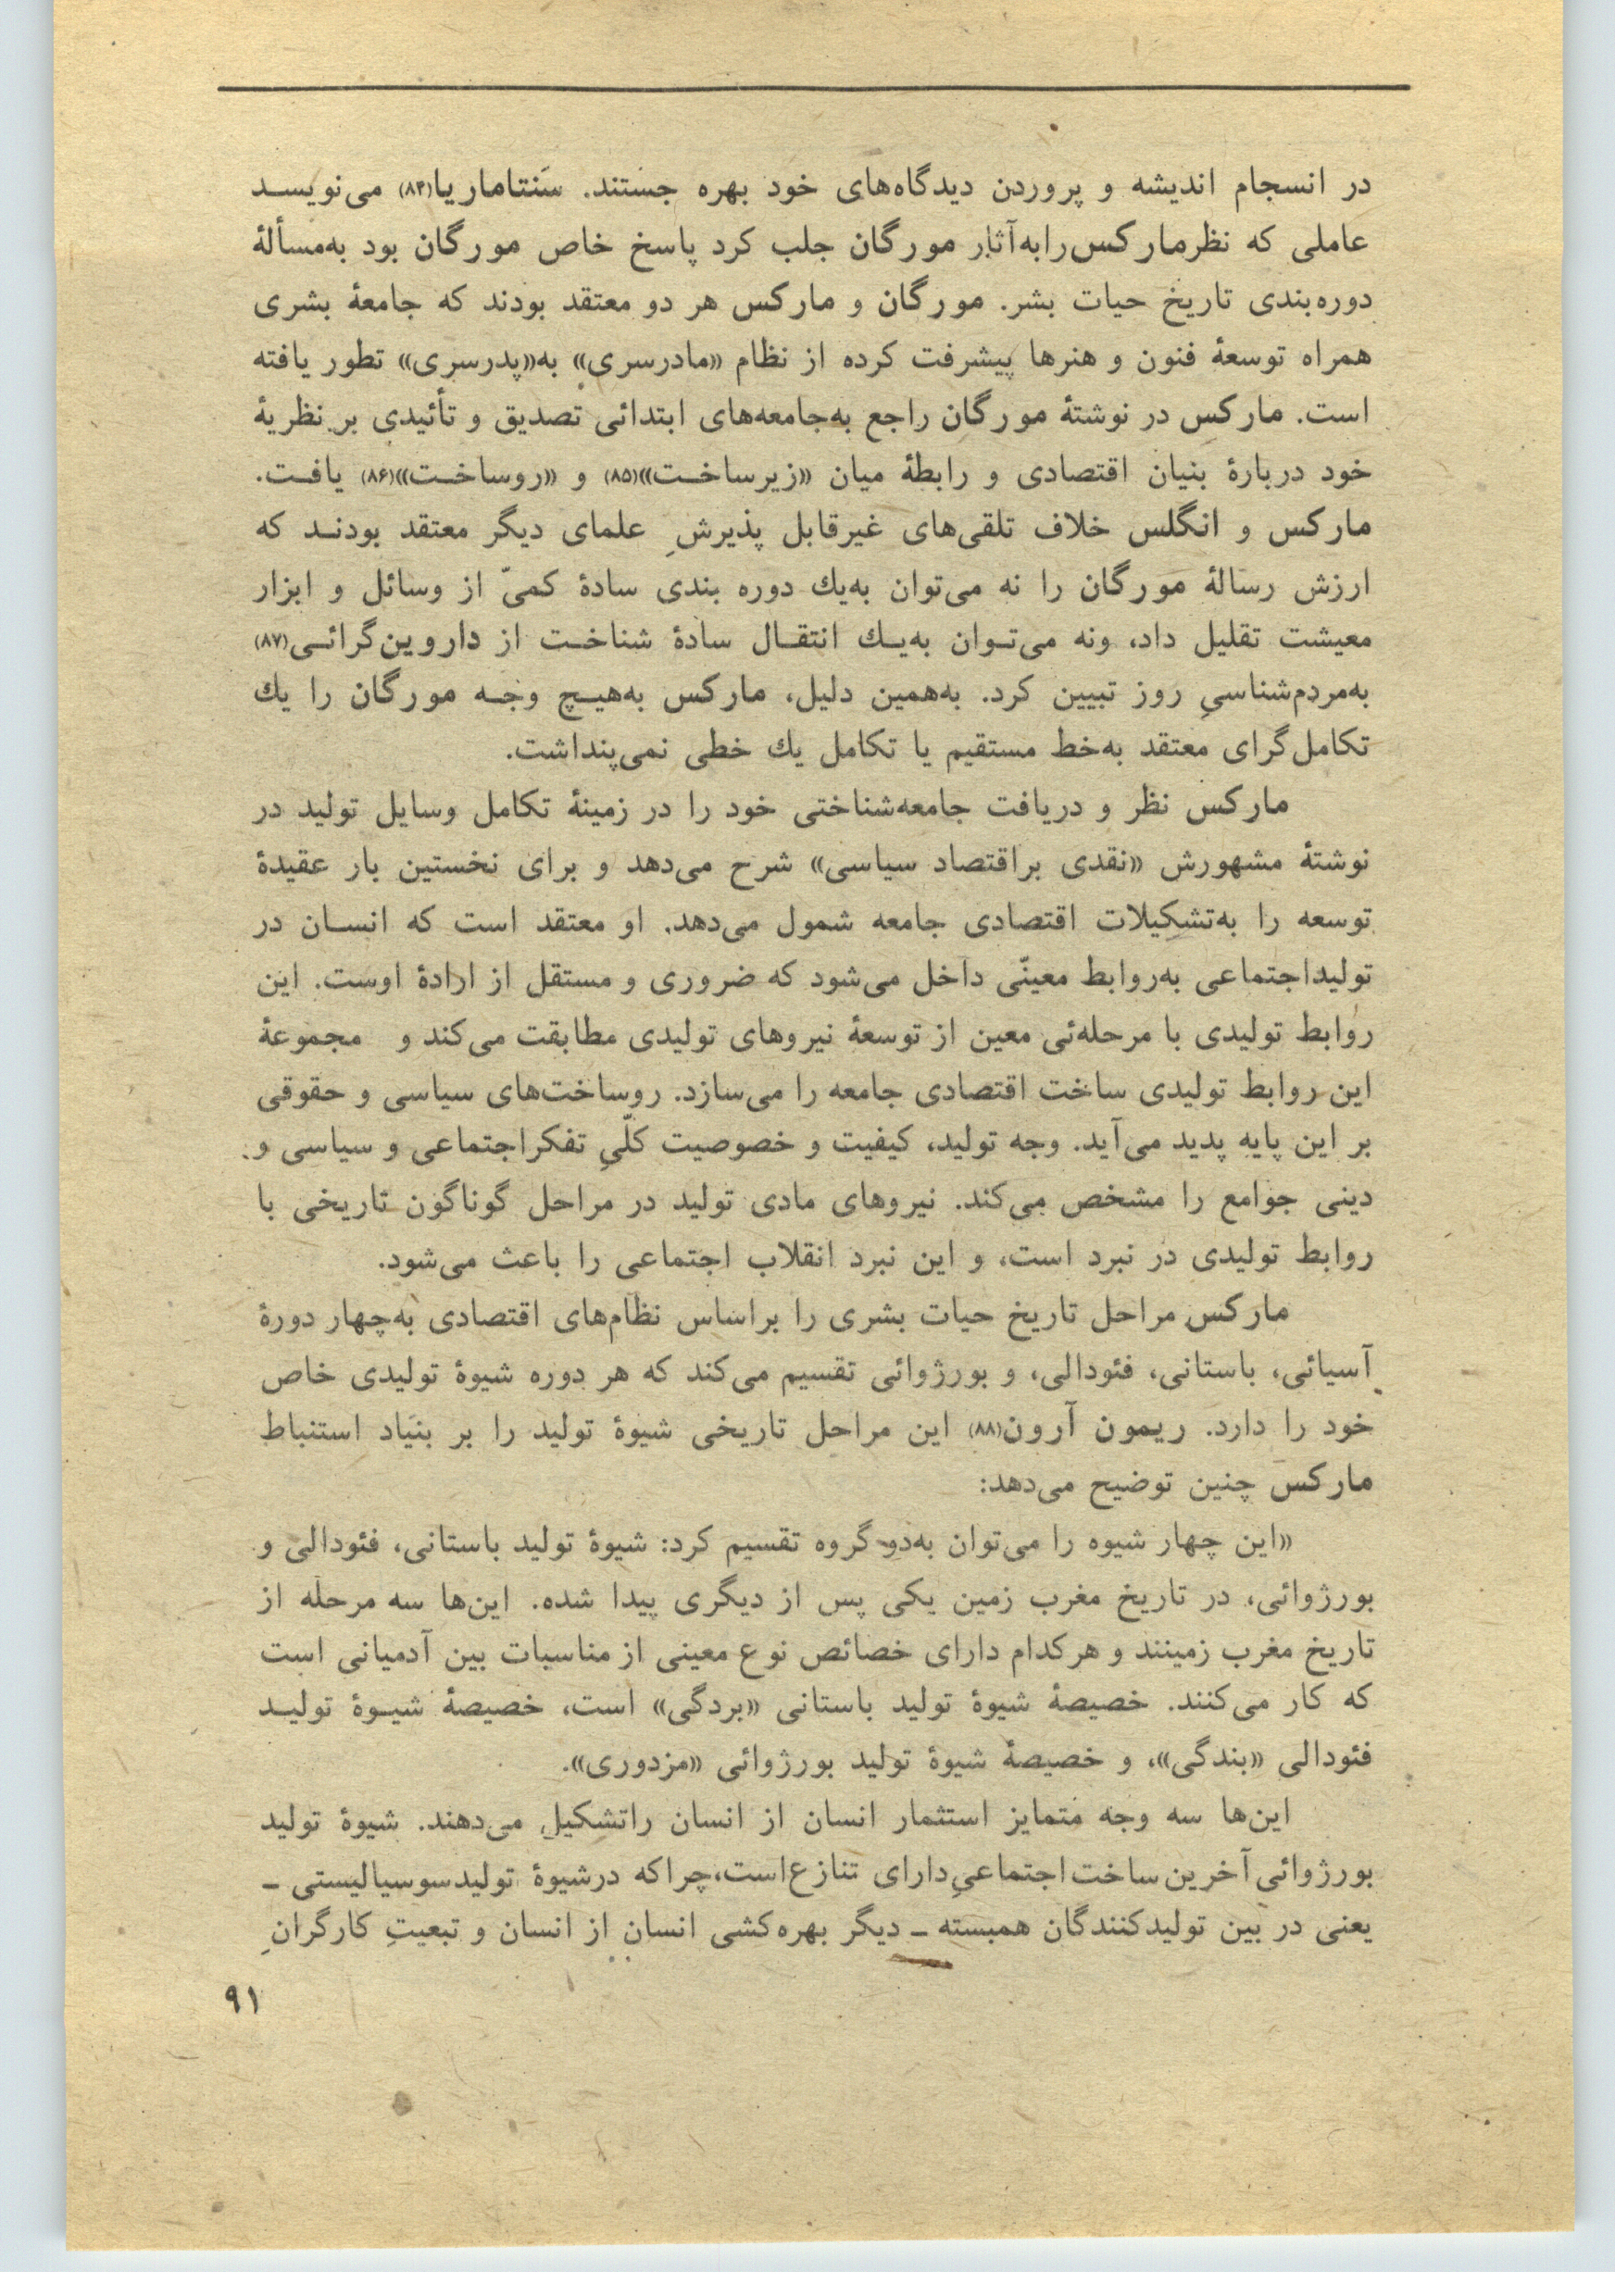 در انسجام اندیشه و پروردن دیدگاه‌های خود بهره جستند. سَنتاماریا(۸۴) می‌نویسـد
عاملی که نظرمارکس‌رابه‌آثار مورگان جلب کرد پاسخ خاص مورگان بود به‌مسألهٔ
دوره‌بندی تاریخ حیات بشر. مورگان و مارکس هر دو معتقد بودند که جامعهٔ بشری
همراه توسعهٔ فنون و هنرها پیشرفت کرده از نظام «مادرسری» به«پدرسری» تطور یافته
است. مارکس در نوشتهٔ مورگان راجع به‌جامعه‌های ابتدائی تصدیق و تأئیدی بر نظریهٔ
خود دربارهٔ بنیان اقتصادی و رابطهٔ میان «زیرساخـت»(۸۵) و «روساخـت»(۸۶) یافـت.
مارکس و انگلس خلاف تلقی‌های غیرقابل پذیرشِ علمای دیگر معتقد بودنـد که
ارزش رسالهٔ مورگان را نه می‌توان به‌یك دوره بندی سادهٔ کمیّ از وسائل و ابزار
معیشت تقلیل داد، ونه می‌تـوان به‌یـك انتقـال سادهٔ شناخـت از داروین‌گرائـی(۸۷)
به‌مردم‌شناسیِ روز تبیین کرد. به‌همین دلیل، مارکس به‌هیـچ وجـه مورگان را یك
تکامل‌گرای معتقد به‌خط مستقیم یا تکامل یك خطی نمی‌پنداشت.
مارکس نظر و دریافت جامعه‌شناختی خود را در زمینهٔ تکامل وسایل تولید در
نوشتهٔ مشهورش «نقدی براقتصاد سیاسی» شرح می‌دهد و برای نخستین بار عقیدهٔ
توسعه را به‌تشکیلات اقتصادی جامعه شمول می‌دهد. او معتقد است که انسـان در
تولیداجتماعی به‌روابط معینّی داخل می‌شود که ضروری و مستقل از ارادهٔ اوست. این
روابط تولیدی با مرحله‌ئی معین از توسعهٔ نیروهای تولیدی مطابقت می‌کند و مجموعهٔ
این روابط تولیدی ساخت اقتصادی جامعه را می‌سازد. روساخت‌های سیاسی و حقوقی
بر این پایه پدید می‌آید. وجه تولید، کیفیت و خصوصیت کلّیِ تفکراجتماعی و سیاسی و
دینی جوامع را مشخص می‌کند. نیروهای مادی تولید در مراحل گوناگون تاریخی با
روابط تولیدی در نبرد است، و این نبرد انقلاب اجتماعی را باعث می‌شود.
مارکس مراحل تاریخ حیات بشری را براساس نظام‌های اقتصادی به‌چهار دورهٔ
آسیائی، باستانی، فئودالی، و بورژوائی تقسیم می‌کند که هر دوره شیوهٔ تولیدی خاص
خود را دارد. ریمون آرون(۸۸) این مراحل تاریخی شیوهٔ تولید را بر بنیاد استنباط
مارکس چنین توضیح می‌دهد:
«این چهار شیوه را می‌توان به‌دو گروه تقسیم کرد: شیوهٔ تولید باستانی، فئودالی و
بورژوائی، در تاریخ مغرب زمین یکی پس از دیگری پیدا شده. این‌ها سه مرحله از
تاریخ مغرب زمینند و هرکدام دارای خصائص نوع معینی از مناسبات بین آدمیانی است
که کار می‌کنند. خصیصهٔ شیوهٔ تولید باستانی «بردگی» است، خصیصهٔ شیـوهٔ تولیـد
فئودالی «بندگی»، و خصیصهٔ شیوهٔ تولید بورژوائی «مزدوری».
این‌ها سه وجه متمایز استثمار انسان از انسان راتشکیل می‌دهند. شیوهٔ تولید
بورژوائی آخرین ساخت اجتماعیِ‌دارای تنازع‌است،چراکه درشیوهٔ تولیدسوسیالیستی ـ
یعنی در بین تولیدکنندگان همبسته ـ دیگر بهره‌کشی انسان از انسان و تبعیتِ کارگرانِ
۹۱